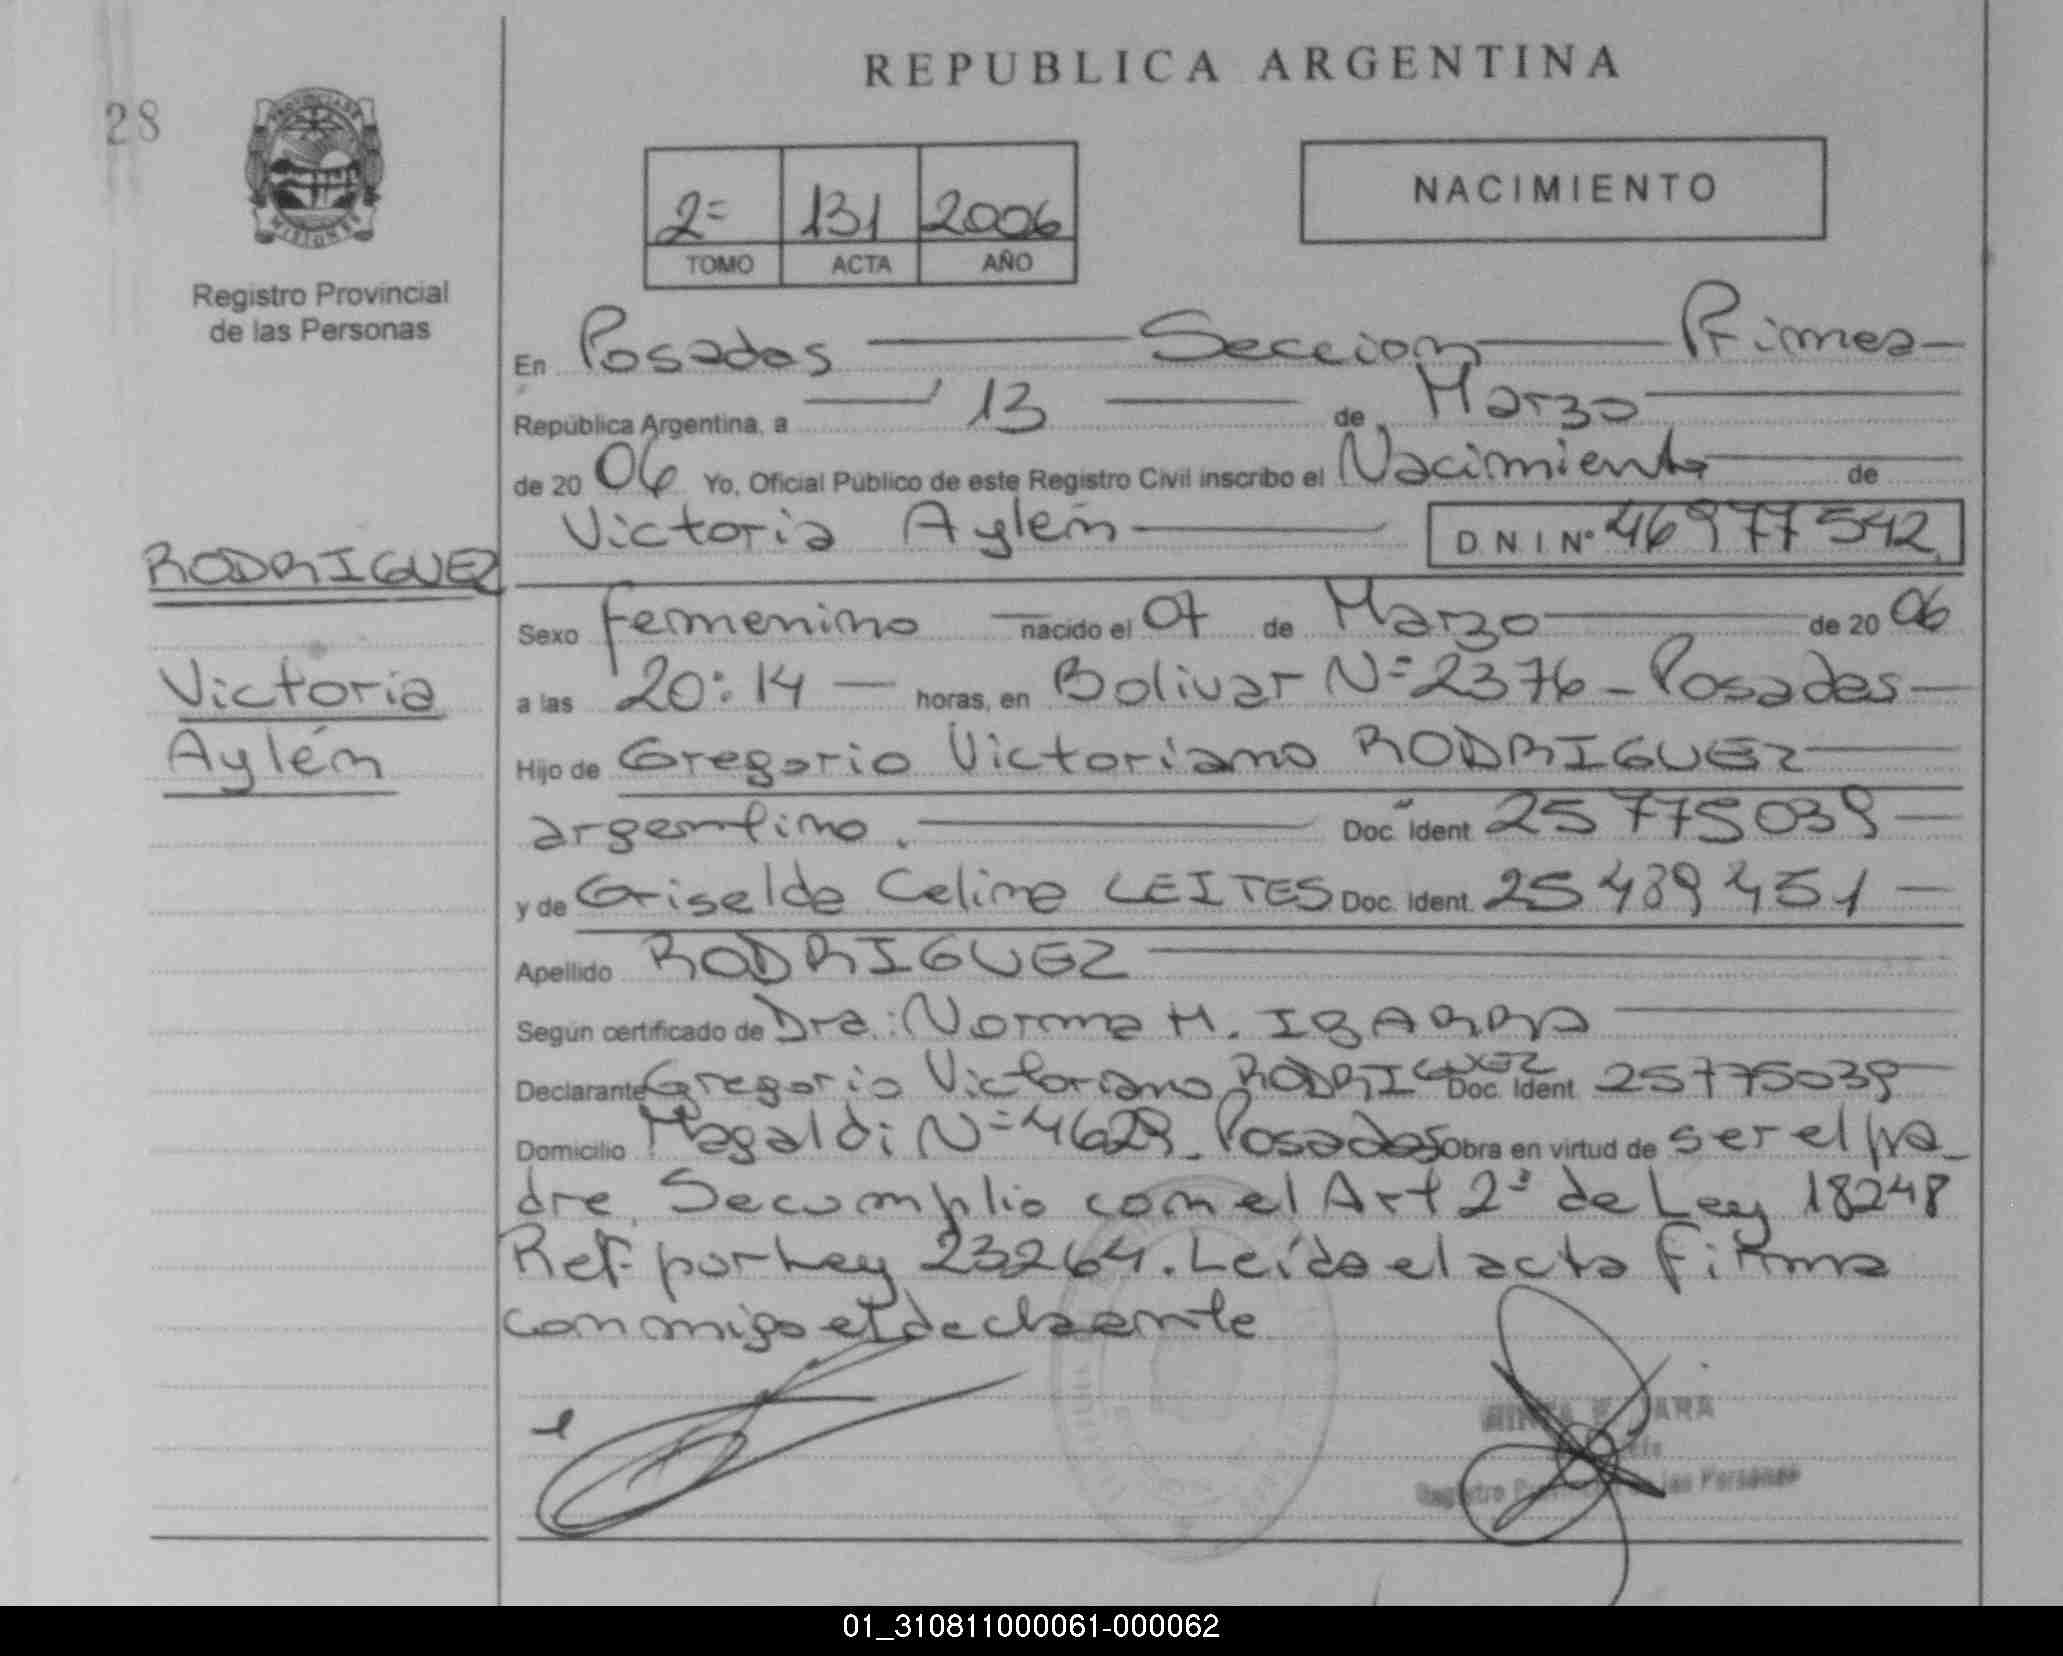 REPUBLICA ARGENTINA
28
PROVINCIA DE
MISIONES
Registro Provincial
de las Personas
2= 131 2006
TOMO ACTA AÑO
NACIMIENTO
En Posadas Seccion Primea
República Argentina, a 13 de Marzo
de 20 06 Yo, Oficial Público de este Registro Civil inscribo el Nacimiento de
Victoria Aylén D N I Nº 46977542
RODRIGUEZ
Victoria
Aylén
Sexo femenino nacido el 07 de Marzo de 20 06
a las 20:14 horas, en Bolivar Nº 2376 - Posadas
Hijo de Gregorio Victoriano RODRIGUEZ
argentino. Doc. Ident. 25775039
y de Griselda Celina LEITES Doc. Ident. 25489451
Apellido RODRIGUEZ
Según certificado de Dra: Norma H. IBARRA
Declarante Gregorio Victoriano RODRIGUEZ Doc. Ident. 25775039
Domicilio Magaldi Nº 4629 - Posadas Obra en virtud de ser el pa-
dre. Se cumplio con el Art 2º de Ley 18248
Ref. por Ley 23264. Leída el acta firma
conmigo el declarante
JARA
Registro las Personas
01_310811000061-000062